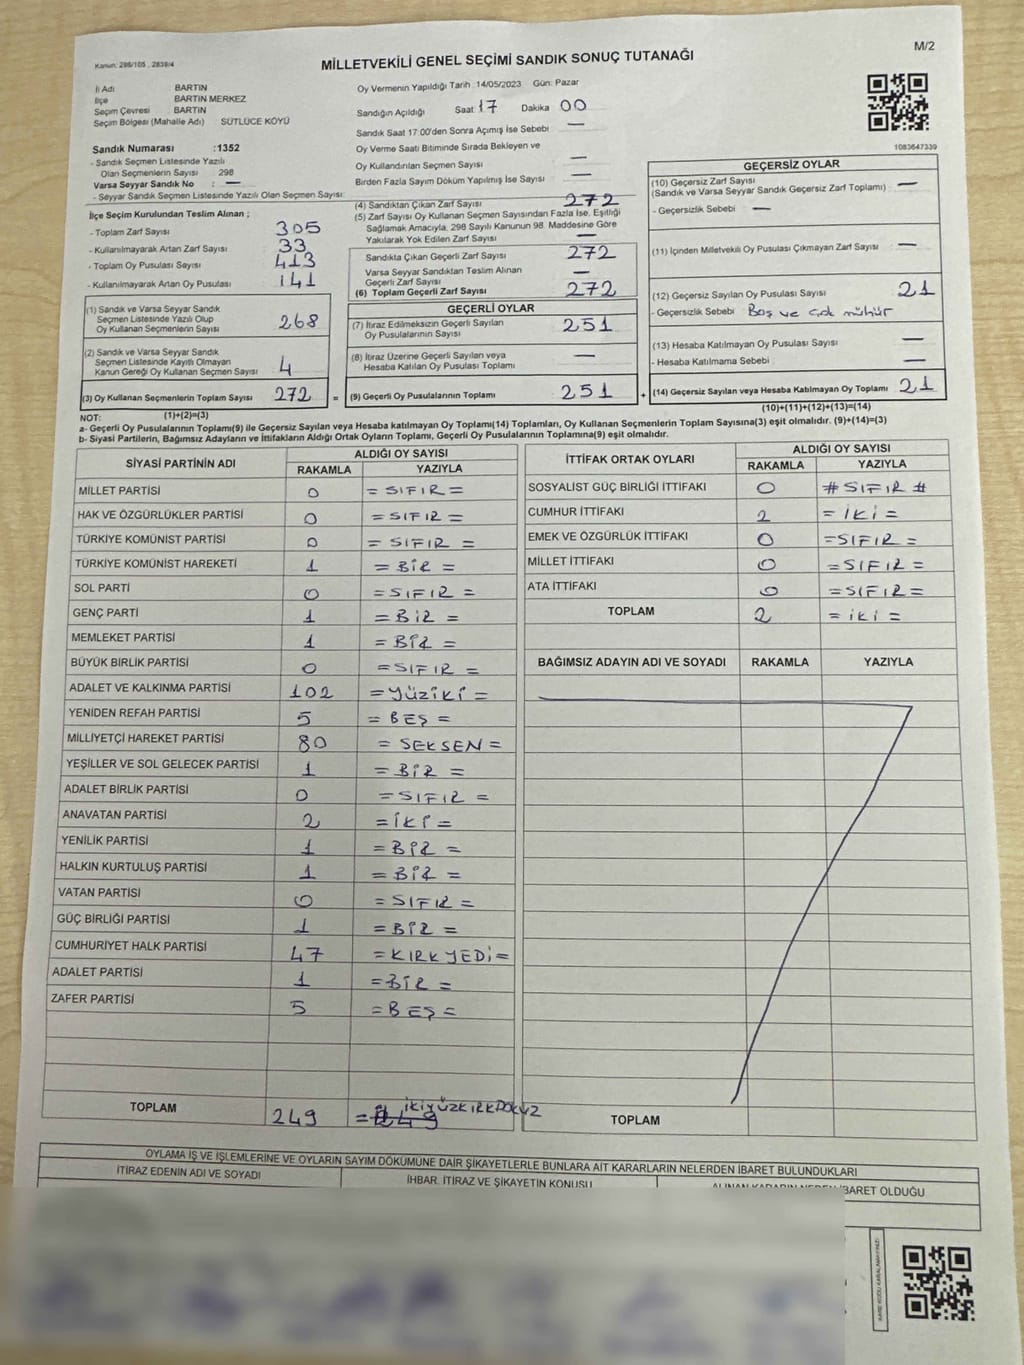 M/2
Kanun: 298/105 , 2839/4
MİLLETVEKİLİ GENEL SEÇİMİ SANDIK SONUÇ TUTANAĞI
İl Adı : BARTIN
İlçe : BARTIN MERKEZ
Seçim Çevresi : BARTIN
Seçim Bölgesi (Mahalle Adı) : SÜTLÜCE KÖYÜ
Sandık Numarası :1352
- Sandık Seçmen Listesinde Yazılı
Olan Seçmenlerin Sayısı : 298
Varsa Seyyar Sandık No : —
- Seyyar Sandık Seçmen Listesinde Yazılı Olan Seçmen Sayısı:
İlçe Seçim Kurulundan Teslim Alınan ;
- Toplam Zarf Sayısı : 305
- Kullanılmayarak Artan Zarf Sayısı : 33
- Toplam Oy Pusulası Sayısı : 413
- Kullanılmayarak Artan Oy Pusulası : 141
(1) Sandık ve Varsa Seyyar Sandık
Seçmen Listesinde Yazılı Olup
Oy Kullanan Seçmenlerin Sayısı : 268
(2) Sandık ve Varsa Seyyar Sandık
Seçmen Listesinde Kayıtlı Olmayan
Kanun Gereği Oy Kullanan Seçmen Sayısı : 4
(3) Oy Kullanan Seçmenlerin Toplam Sayısı : 272 =
(1)+(2)=(3)
Oy Vermenin Yapıldığı Tarih : 14/05/2023 Gün: Pazar
Sandığın Açıldığı Saat 17 Dakika 00
Sandık Saat 17:00'den Sonra Açımış İse Sebebi : —
Oy Verme Saati Bitiminde Sırada Bekleyen ve
Oy Kullandırılan Seçmen Sayısı : —
Birden Fazla Sayım Döküm Yapılmış İse Sayısı : —
(4) Sandıktan Çıkan Zarf Sayısı : 272
(5) Zarf Sayısı Oy Kullanan Seçmen Sayısından Fazla İse, Eşitliği
Sağlamak Amacıyla, 298 Sayılı Kanunun 98. Maddesine Göre
Yakılarak Yok Edilen Zarf Sayısı : —
Sandıkla Çıkan Geçerli Zarf Sayısı : 272
Varsa Seyyar Sandıktan Teslim Alınan
Geçerli Zarf Sayısı : —
(6) Toplam Geçerli Zarf Sayısı : 272
GEÇERLİ OYLAR
(7) İtiraz Edilmeksizin Geçerli Sayılan
Oy Pusulalarının Sayısı : 251
(8) İtiraz Üzerine Geçerli Sayılan veya
Hesaba Katılan Oy Pusulası Toplamı : —
(9) Geçerli Oy Pusulalarının Toplamı : 251 +
1083647339
GEÇERSİZ OYLAR
(10) Geçersiz Zarf Sayısı
(Sandık ve Varsa Seyyar Sandık Geçersiz Zarf Toplamı) : —
- Geçersizlik Sebebi : —
(11) İçinden Milletvekili Oy Pusulası Çıkmayan Zarf Sayısı : —
(12) Geçersiz Sayılan Oy Pusulası Sayısı : 21
- Geçersizlik Sebebi : Boş ve çok mühür
(13) Hesaba Katılmayan Oy Pusulası Sayısı : —
- Hesaba Katılmama Sebebi : —
(14) Geçersiz Sayılan veya Hesaba Katılmayan Oy Toplamı : 21
(10)+(11)+(12)+(13)=(14)
NOT:
a- Geçerli Oy Pusulalarının Toplamı(9) ile Geçersiz sayılan veya hesaba katılmayan Oy Toplamı(14) Toplamları, Oy Kullanan Seçmenlerin Toplam Sayısına(3) eşit olmalıdır. (9)+(14)=(3)
b- Siyasi Partilerin, Bağımsız Adayların ve İttifakların Aldığı Ortak Oyların Toplamı, Geçerli Oy Pusulalarının Toplamına(9) eşit olmalıdır.
SİYASİ PARTİNİN ADI ALDIĞI OY SAYISI
RAKAMLA YAZIYLA
MİLLET PARTİSİ 0 = SIFIR =
HAK VE ÖZGÜRLÜKLER PARTİSİ 0 = SIFIR =
TÜRKİYE KOMÜNİST PARTİSİ 0 = SIFIR =
TÜRKİYE KOMÜNİST HAREKETİ 1 = BİR =
SOL PARTİ 0 = SIFIR =
GENÇ PARTİ 1 = BİR =
MEMLEKET PARTİSİ 1 = BİR =
BÜYÜK BİRLİK PARTİSİ 0 = SIFIR =
ADALET VE KALKINMA PARTİSİ 102 = YÜZİKİ =
YENİDEN REFAH PARTİSİ 5 = BEŞ =
MİLLİYETÇİ HAREKET PARTİSİ 80 = SEKSEN =
YEŞİLLER VE SOL GELECEK PARTİSİ 1 = BİR =
ADALET BİRLİK PARTİSİ 0 = SIFIR =
ANAVATAN PARTİSİ 2 = İKİ =
YENİLİK PARTİSİ 1 = BİR =
HALKIN KURTULUŞ PARTİSİ 1 = BİR =
VATAN PARTİSİ 0 = SIFIR =
GÜÇ BİRLİĞİ PARTİSİ 1 = BİR =
CUMHURİYET HALK PARTİSİ 47 = KIRKYEDİ =
ADALET PARTİSİ 1 = BİR =
ZAFER PARTİSİ 5 = BEŞ =
TOPLAM 249 = İKİYÜZKIRKDOKUZ
İTTİFAK ORTAK OYLARI ALDIĞI OY SAYISI
RAKAMLA YAZIYLA
SOSYALİST GÜÇ BİRLİĞİ İTTİFAKI 0 # SIFIR #
CUMHUR İTTİFAKI 2 = İKİ =
EMEK VE ÖZGÜRLÜK İTTİFAKI 0 = SIFIR =
MİLLET İTTİFAKI 0 = SIFIR =
ATA İTTİFAKI 0 = SIFIR =
TOPLAM 2 = İKİ =
BAĞIMSIZ ADAYIN ADI VE SOYADI RAKAMLA YAZIYLA
TOPLAM
OYLAMA İŞ VE İŞLEMLERİNE VE OYLARIN SAYIM DÖKÜMÜNE DAİR ŞİKAYETLERLE BUNLARA AİT KARARLARIN NELERDEN İBARET BULUNDUKLARI
İTİRAZ EDENİN ADI VE SOYADI İHBAR, İTİRAZ VE ŞİKAYETİN KONUSU ALINAN KARARIN NEDEN İBARET OLDUĞU